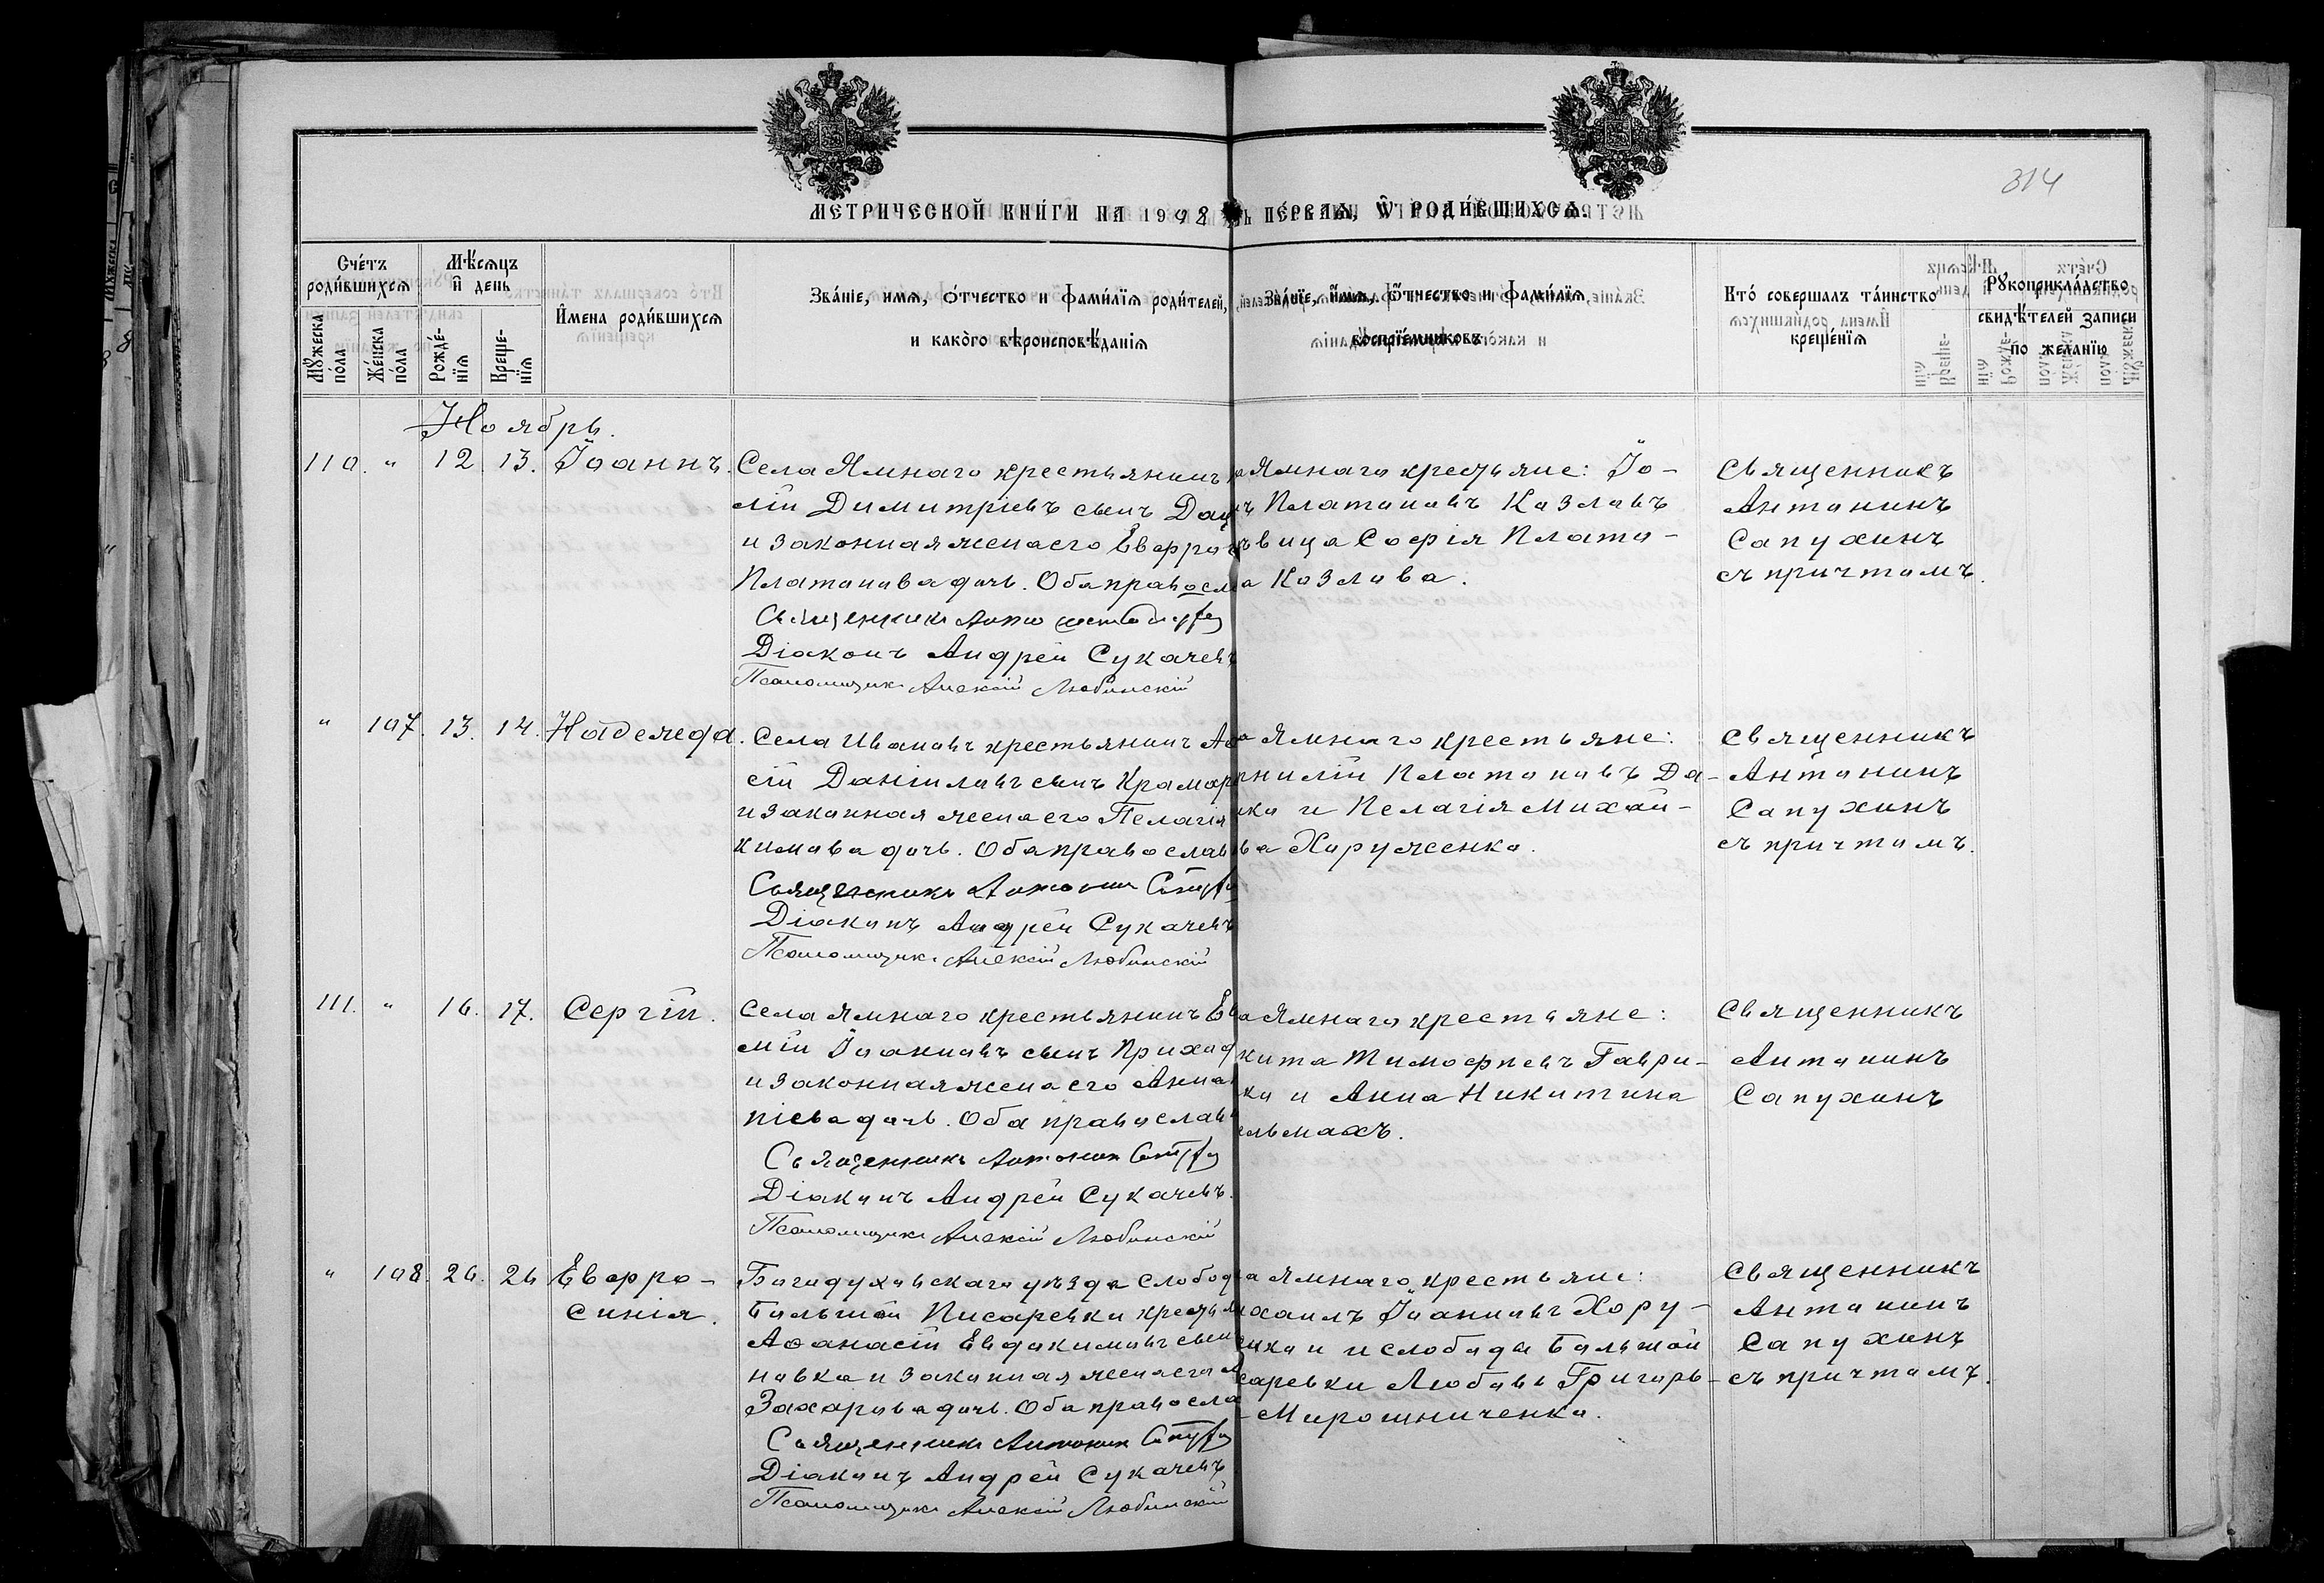 314
МЕТРИЧЕСКОЙ КНИГИ НА 1908
ПЕРВАЯ, Ѿ РОДИВШИХСЯ.
Счетъ родившихся
Мужеска пола
Женска пола
Мѣсяцъ и день
Рожденія
Крещенія
Имена родившихся
Званіе, имя, отчество и фамилія родителей,
и какого вѣроисповѣданія
Званіе, имя, отчество и фамилія
воспріемниковъ
Кто совершалъ таинство
крещенія
Рукоприкладство
свидѣтелей записи
по желанію
Ноябрь.
110. " 12. 13. Іоаннъ.
Села Ямнаго крестьянинъ
лій Димитріевъ сынъ
и законная жена его
Платонова дочь. Оба
Священникъ
Діаконъ Андрей Сукачевъ
Псаломщикъ Алексій Любинскій
Ямнаго крестьяне: Іо-
Платоновъ Козловъ
вица Софія Плато-
Козлова.
Священникъ
Антонинъ
Сапухинъ
съ причтомъ.
" 107. 13. 14. Надежда.
Села Ивановъ крестьянинъ
сій Даніиловъ сынъ
и законная жена его Пелагія
кимова дочь. Оба
Священникъ Антонин
Діаконъ Андрей Сукачевъ
Псаломщикъ Алексій Любинскій
Ямнаго крестьяне:
рнилій Платоновъ Да-
ка и Пелагія Михай-
ва Хоруженко.
Священникъ
Антонинъ
Сапухинъ
съ причтомъ.
111. " 16. 17. Сергій.
Села Ямнаго крестьянинъ
мій Іоанновъ сынъ
и законная жена его Анна
піева дочь. Оба
Священникъ Антонин
Діаконъ Андрей Сукачевъ.
Псаломщикъ Алексій Любинскій
Ямнаго крестьяне:
кита Тимофеевъ Гаври-
ка и Анна Никитина
ельмахъ.
Священникъ
Антонинъ
Сапухинъ
" 108. 26. 26 Евфро-
синія.
Богодуховскаго уѣзда
Большой Писаревки
Аѳанасій Евдокимовъ сынъ
новка и законная жена его
Захарова дочь. Оба
Священникъ Антонин
Діаконъ Андрей Сукачевъ
Псаломщикъ Алексій Любинскій
Ямнаго крестьяне:
хаилъ Іоанновъ Хору-
енко и слободы Большой
саревки Любовь Григорь-
Мирошниченко.
Священникъ
Антонинъ
Сапухинъ
съ причтомъ.